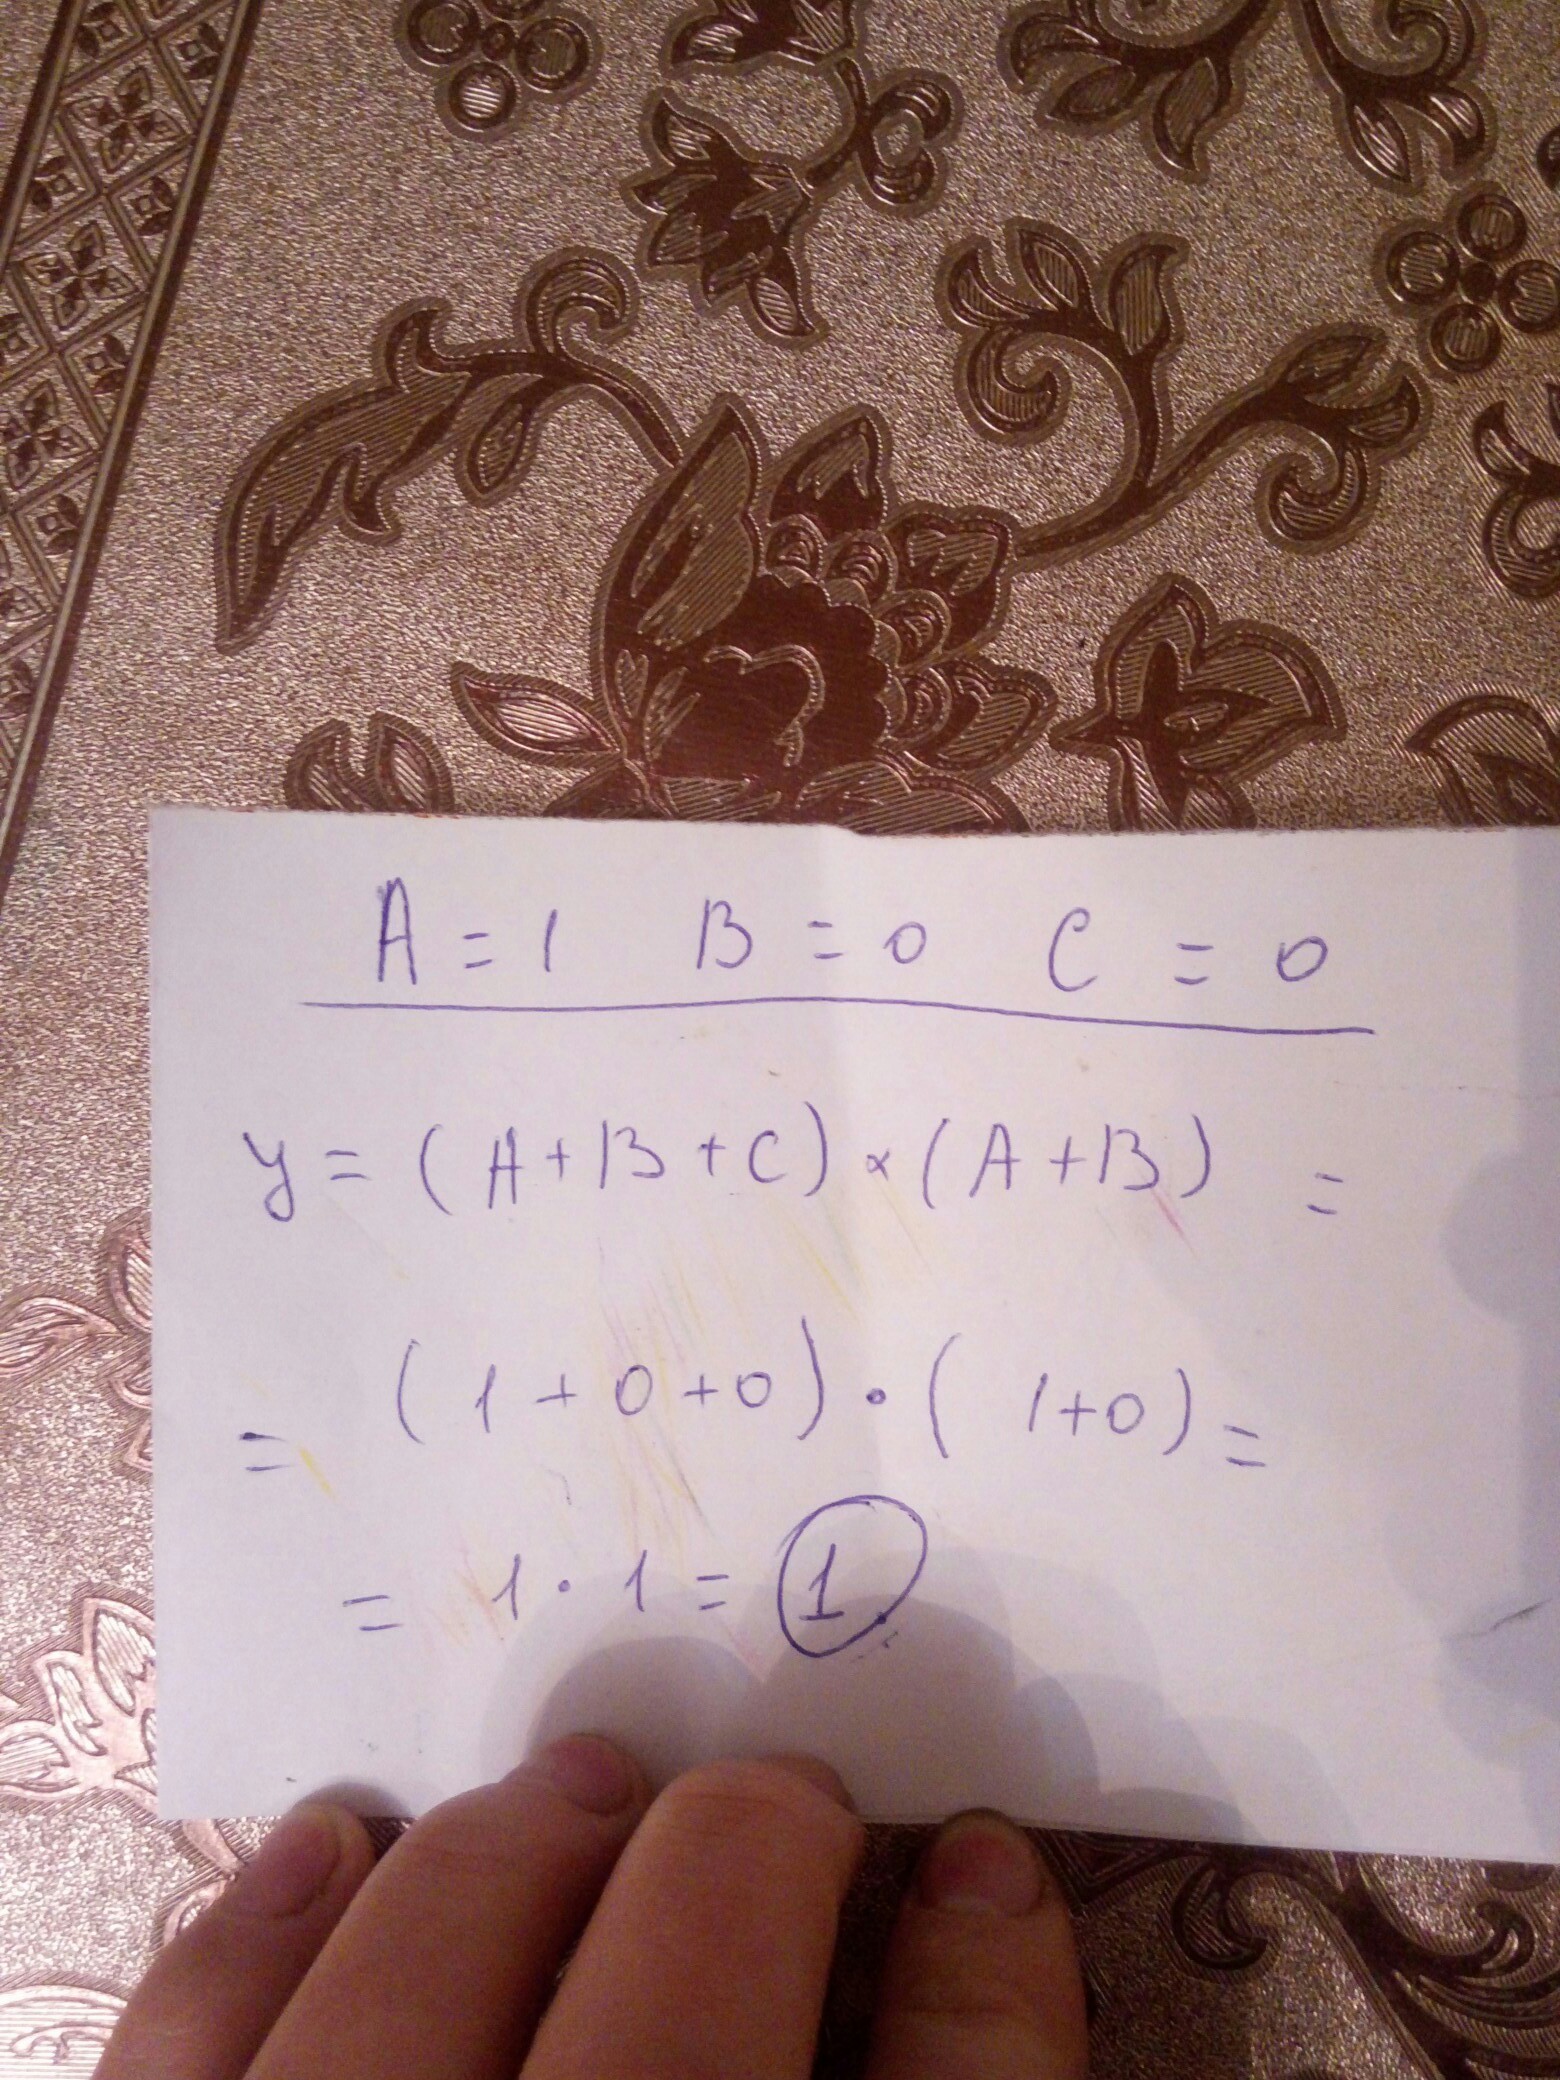 A = 1 B = 0 C = 0
y = (A + B + C) × (A + B) =
= (1 + 0 + 0) · (1 + 0) =
= 1 · 1 = 1